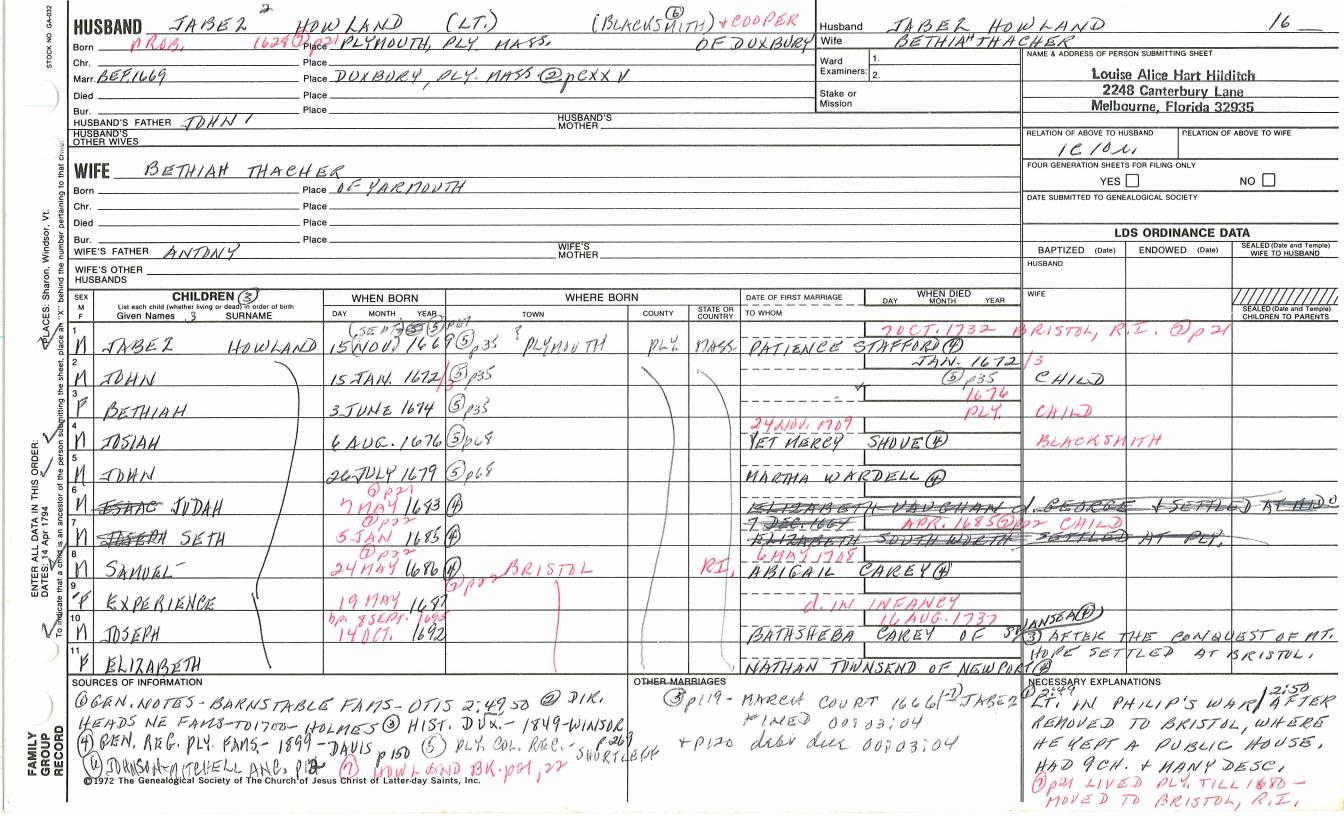 STOCK NO. GA-032
HUSBAND JABEZ 2 HOWLAND (LT.) (BLACKSMITH) ⑥ + COOPER
Born PROB. 1628 ⑦ p21 Place PLYMOUTH, PLY. MASS. OF DUXBURY
Chr. Place
Marr. BEF. 1669 Place DUXBURY, PLY. MASS ② pCXXV
Died Place
Bur. Place
HUSBAND'S FATHER JOHN 1 HUSBAND'S MOTHER
HUSBAND'S OTHER WIVES
Husband JABEZ HOWLAND 16
Wife BETHIAH THACHER
Ward Examiners: 1.
2.
Stake or Mission
NAME & ADDRESS OF PERSON SUBMITTING SHEET
Louise Alice Hart Hilditch
2248 Canterbury Lane
Melbourne, Florida 32935
RELATION OF ABOVE TO HUSBAND RELATION OF ABOVE TO WIFE
FOUR GENERATION SHEETS FOR FILING ONLY
YES NO
DATE SUBMITTED TO GENEALOGICAL SOCIETY
WIFE BETHIAH THACHER
Born Place OF YARMOUTH
Chr. Place
Died Place
Bur. Place
WIFE'S FATHER ANTONY WIFE'S MOTHER
WIFE'S OTHER HUSBANDS
LDS ORDINANCE DATA
BAPTIZED (Date) ENDOWED (Date) SEALED (Date and Temple) WIFE TO HUSBAND
HUSBAND
WIFE
SEALED (Date and Temple) CHILDREN TO PARENTS
SEX M F
CHILDREN ③
List each child (whether living or dead) in order of birth
Given Names 3 SURNAME
WHEN BORN
DAY MONTH YEAR
WHERE BORN
TOWN COUNTY STATE OR COUNTRY
DATE OF FIRST MARRIAGE
TO WHOM
WHEN DIED
DAY MONTH YEAR
(SEPT) ⑤ p67 ? 7 OCT. 1732 BRISTOL, R.I. ⑦ p21
1 M JABEZ HOWLAND 15 NOV. 1669 ⑤ p35 PLYMOUTH PLY. MASS PATIENCE STAFFORD ④
JAN. 1672/3
2 M JOHN 15 JAN. 1672/3 ⑤ p35 ⑤ p35 CHILD
1676
3 F BETHIAH 3 JUNE 1674 ⑤ p35 PLY. CHILD
24 NOV. 1709
4 M JOSIAH 6 AUG. 1676 ⑤ p68 YET MERCY SHOVE ④ BLACKSMITH
5 M JOHN 26 JULY 1679 ⑤ p68 MARTHA WARDELL ④
⑦ p21
6 M ISAAC JUDAH 7 MAY 1683 ④ ELIZABETH VAUGHAN d. GEORGE & SETTLED AT MIDO
⑦ p22 7 DEC. 1664 APR. 1685 ⑦ p22 CHILD
7 M JOSEPH SETH 5 JAN 1685 ④ ELIZABETH SOUTHWORTH SETTLED AT PLY.
⑦ p22 6 MAY 1708
8 M SAMUEL 24 MAY 1686 ④ BRISTOL R.I. ABIGAIL CAREY ④
⑦ p22
9 F EXPERIENCE 19 MAY 1687 d. IN INFANCY
bp. 8 SEPT. 1695 16 AUG. 1737
10 M JOSEPH 14 OCT. 1692 BATHSHEBA CAREY OF SWANSEA ④
11 F ELIZABETH NATHAN TOWNSEND OF NEWPORT ④
③ AFTER THE CONQUEST OF MT. HOPE SETTLED AT BRISTOL.
SOURCES OF INFORMATION
① GEN. NOTES - BARNSTABLE FAMS - OTIS 2:49 50 ② DIR.
HEADS NE FAMS - TO 1700 - HOLMES ③ HIST. DUX. - 1849 - WINSOR
④ GEN. REG. PLY. FAMS. - 1899 - DAVIS p150 ⑤ PLY. COL. REC. - SHURTLEFF p269
⑥ JOHNSON-MITCHELL ANC. p12 ⑦ HOWLAND BK. p21, 22
©1972 The Genealogical Society of The Church of Jesus Christ of Latter-day Saints, Inc.
OTHER MARRIAGES
③ p119 - MARCH COURT 1666/-7 JABEZ
FINED 00:03:04
+ p120 debt due 00:03:04
NECESSARY EXPLANATIONS
① 2:49 2:50
LT. IN PHILIP'S WAR / AFTER
REMOVED TO BRISTOL, WHERE
HE KEPT A PUBLIC HOUSE.
HAD 9 CH. + MANY DESC.
⑦ p21 LIVED PLY. TILL 1680 -
MOVED TO BRISTOL, R.I.
FAMILY GROUP RECORD
ENTER ALL DATA IN THIS ORDER:
DATES: 14 Apr 1794
PLACES: Sharon, Windsor, Vt.
To indicate that a child is an ancestor of the person submitting the sheet, place an "X" behind the number pertaining to that child.